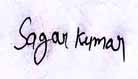 Sagar kumar